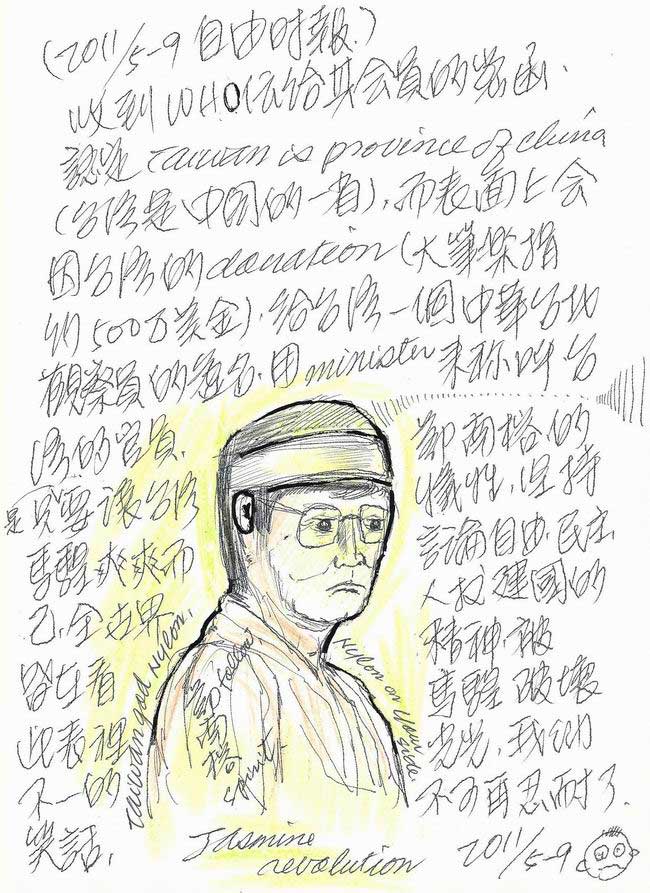 (2011/5-9 自由时報)
收到WHO伝给其会員的密函.
認定Taiwan is province of china
(台湾是中国的一省), 而表面上会
因台湾的donation(大筆樂捐
約500万美金), 給台湾一個中華台北
觀察員的通名, 用minister来称呼台
湾的官員,
是只要讓台湾
馬醒爽爽而
已, 全世界
皆在看
此表裡
不一的
笑話,
鄭南榕的
犧牲, 坚持
討論自由, 民主,
人权, 建國的
精神, 被
馬醒破壞
光光, 我们
不可再忍耐了.
Taiwan god Nylon,
follow
鄭南榕
spirit.
Nylon on your side.
Jasmine
revolution
2011/5-9